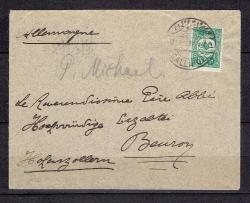 Allemagne
P. Michael
Le Reverendissime Père Abbé
Hochwürdige Erzabtei
Beuron
Hohenzollern